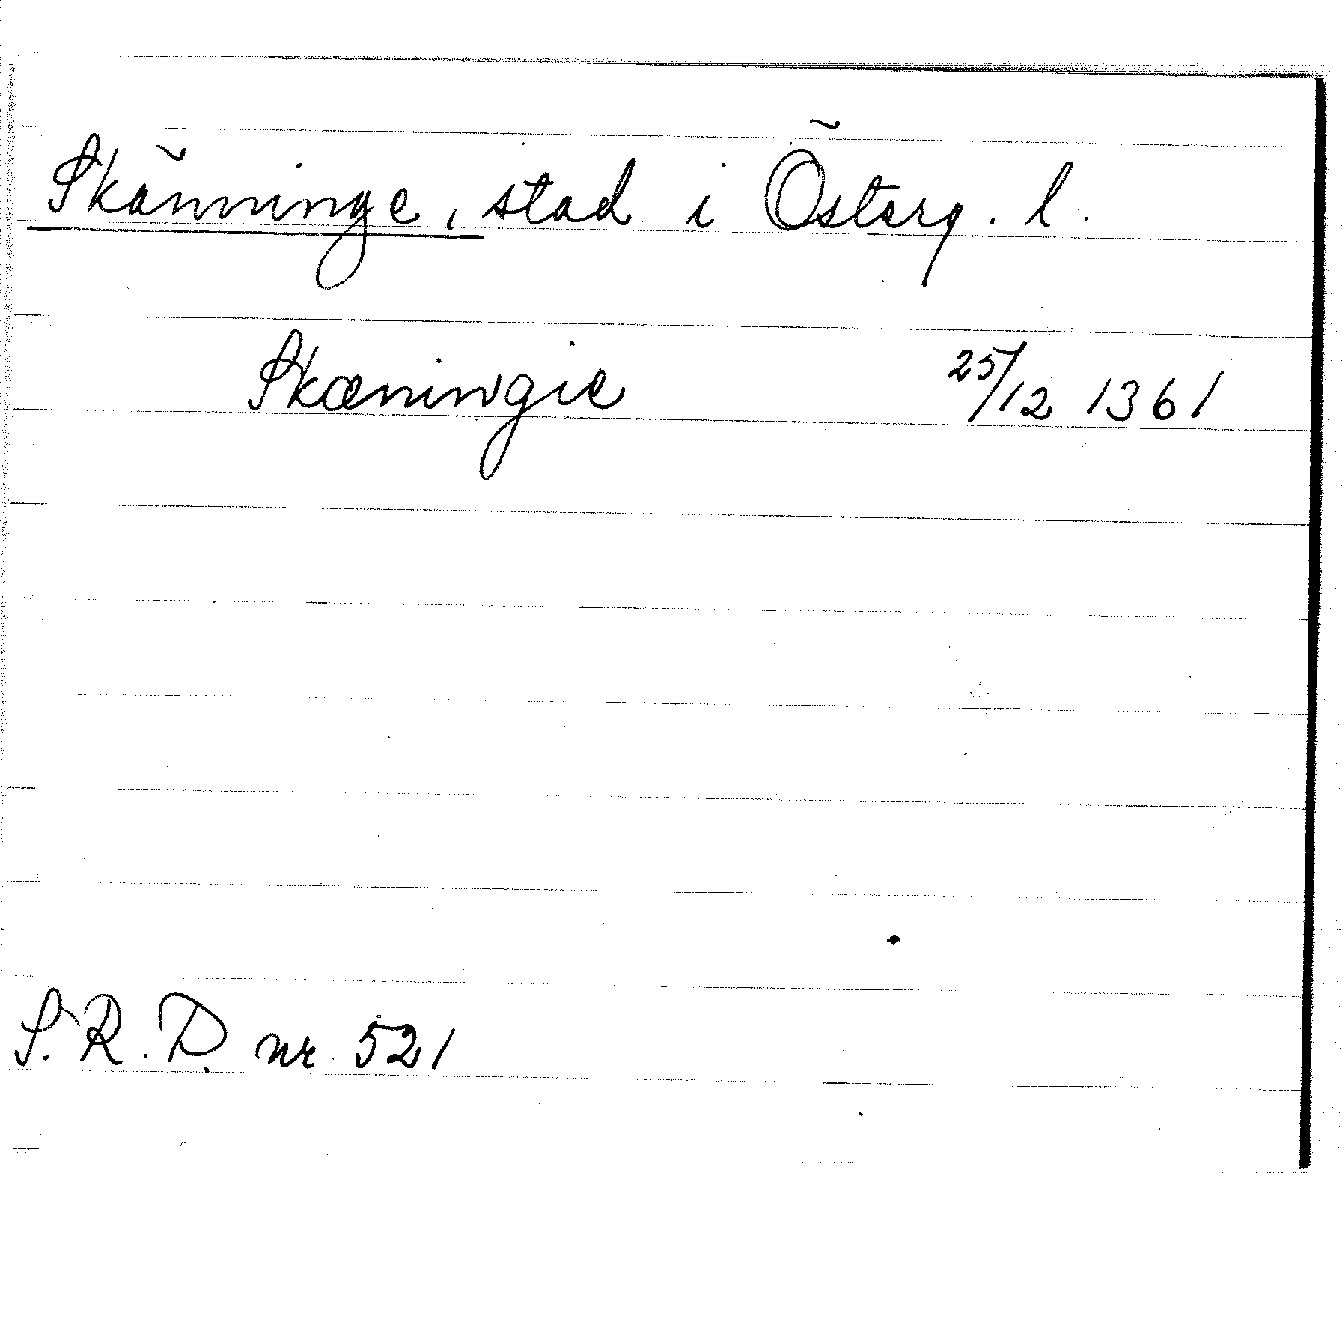 Skänninge, stad i Österg. l.
Skæningie 25/12 1361
S. R. P. nr 521